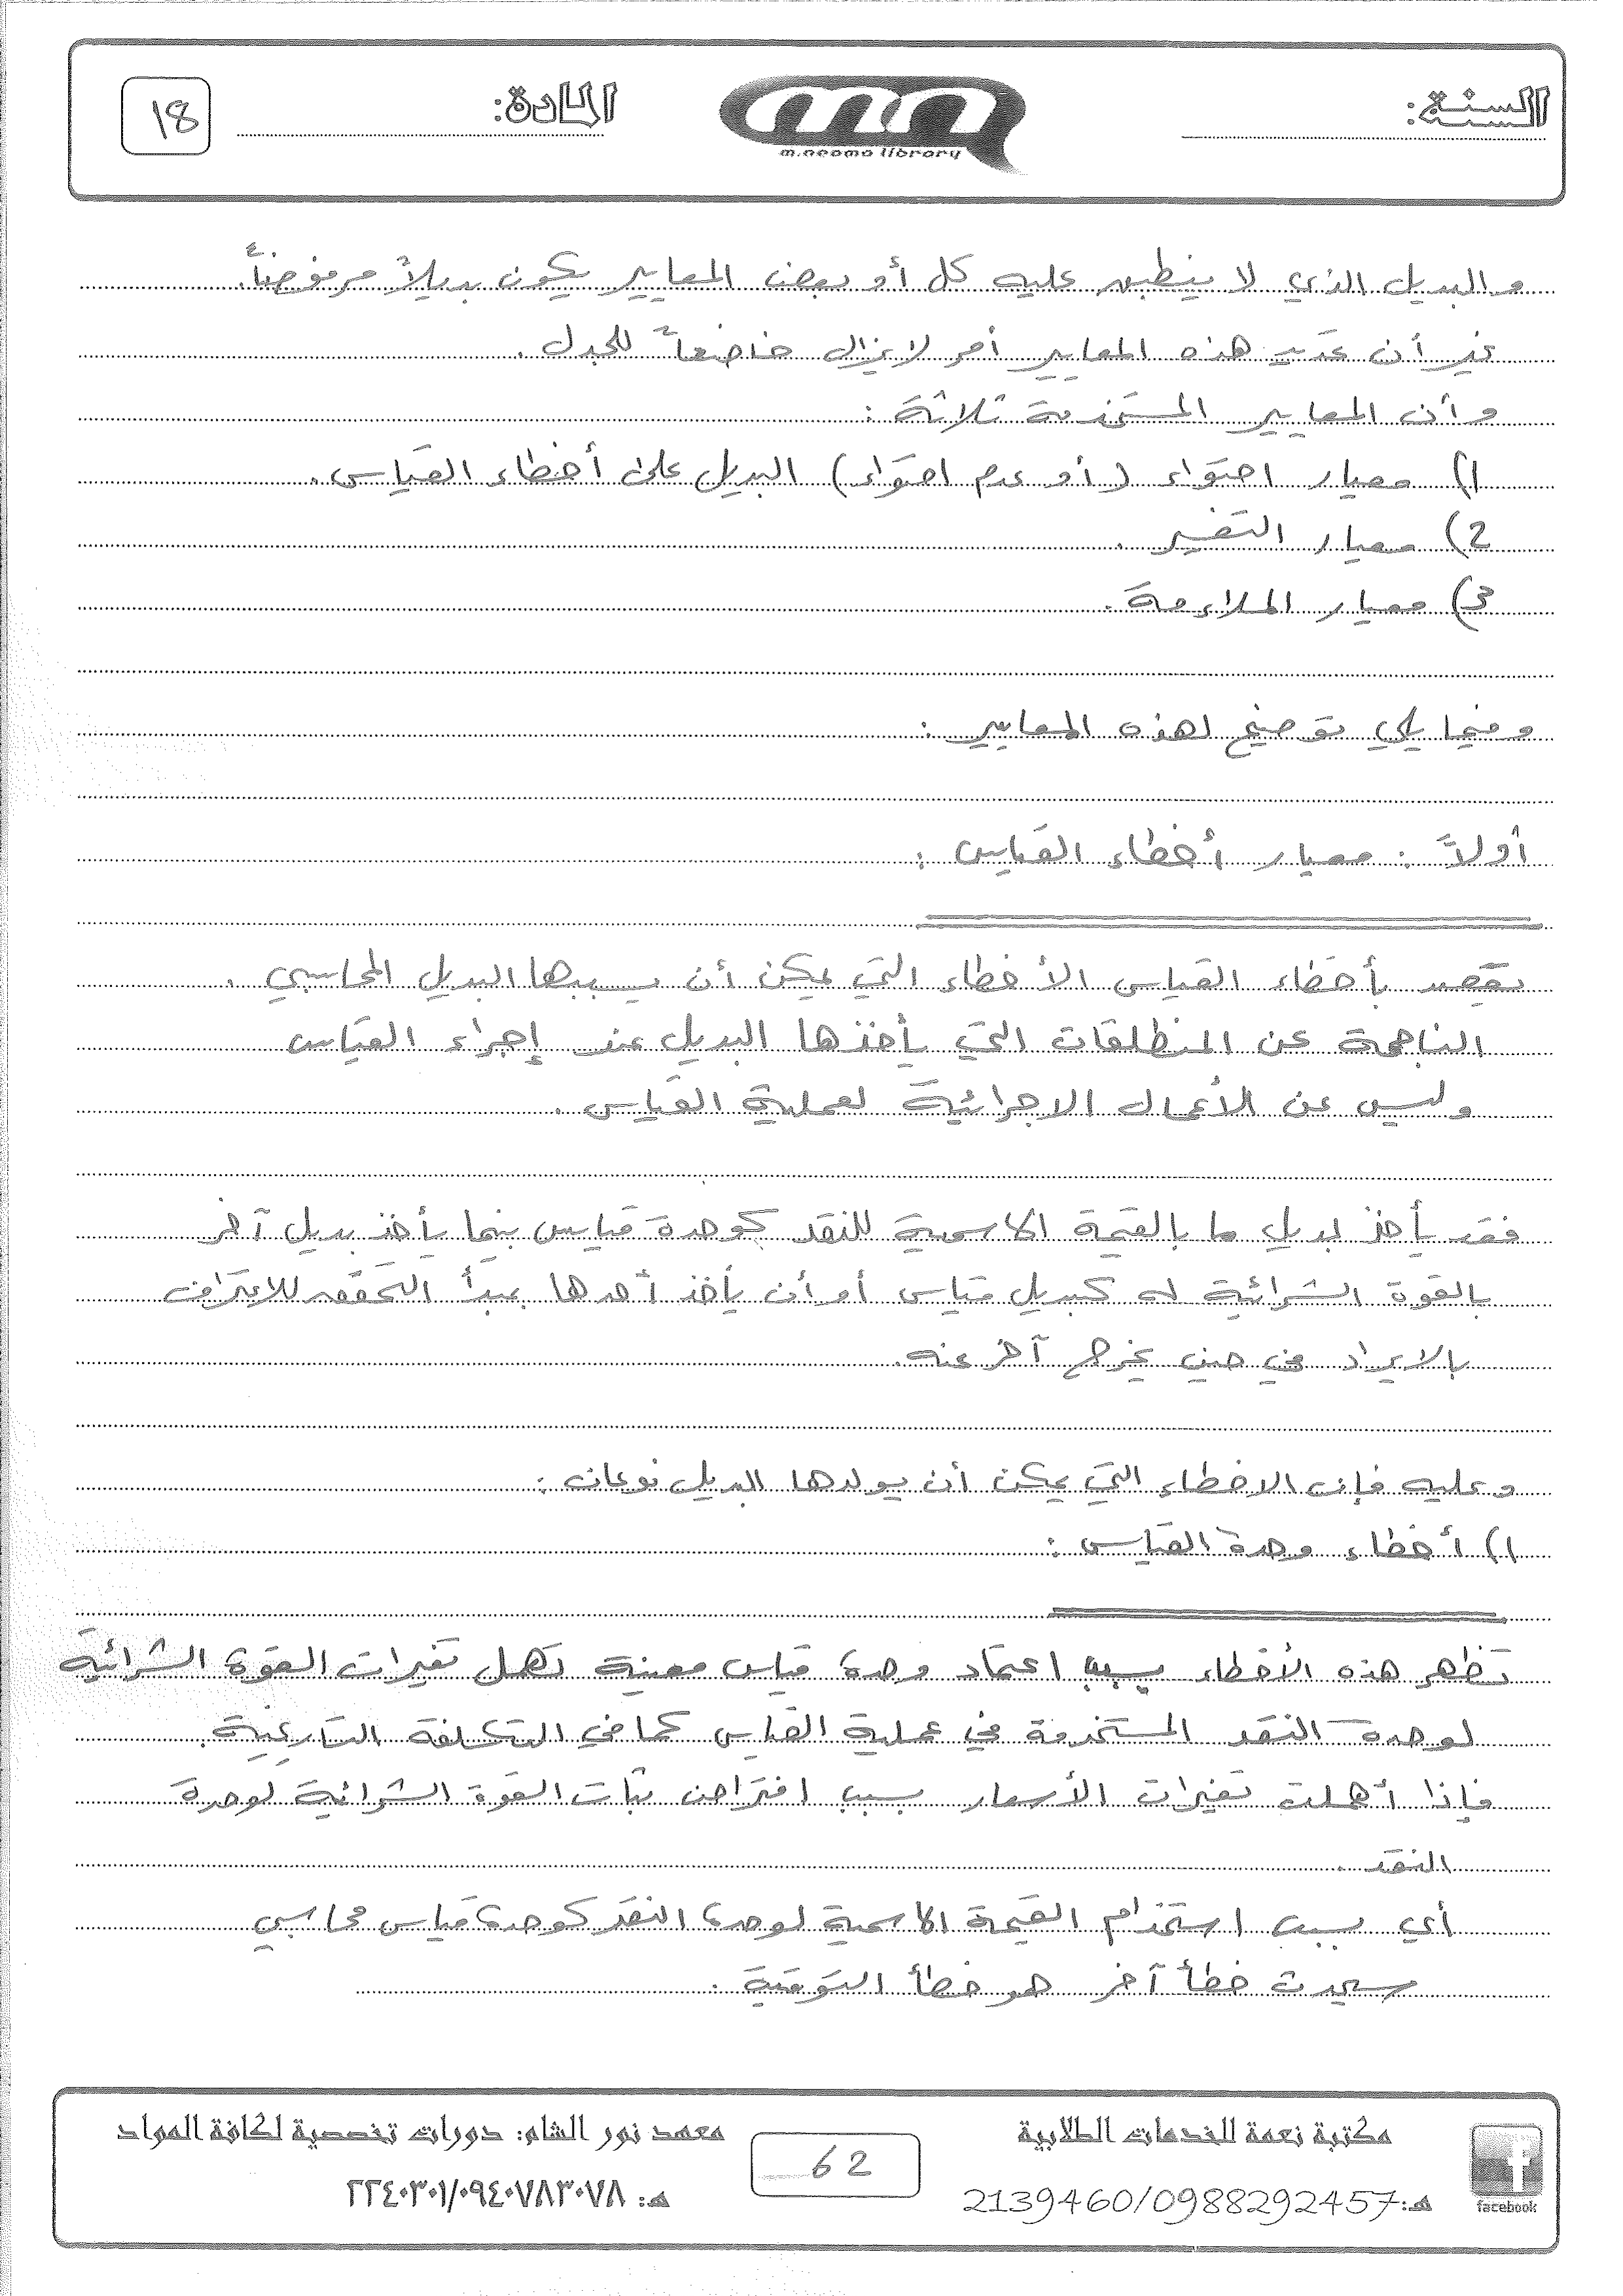 السنة:
m.neama library
المادة:
18
والبديل الذي لا ينطبق عليه كل أو بعض المعايير يكون بديلاً مرفوضاً.
غير أن تحديد هذه المعايير أمر لا يزال خاضعاً للجدل.
وأن المعايير المستخدمة ثلاثة:
1) معيار احتواء (أو عدم احتواء) البديل على أخطاء القياس.
2) معيار التفسير.
3) معيار الملاءمة.
وفيما يلي توضيح لهذه المعايير:
أولاً: معيار أخطاء القياس:
يقصد بأخطاء القياس الأخطاء التي يمكن أن يسببها البديل المحاسبي.
الناجمة عن المنطلقات التي يأخذها البديل عند إجراء القياس
وليس عن الأعمال الاجرائية لعملية القياس.
فقد يأخذ بديل ما بالقيمة الاسمية للنقد كوحدة قياس بينما يأخذ بديل آخر
بالقوة الشرائية له كبديل قياس أو أن يأخذ أحدها بمبدأ التحقق للاعتراف
بالايراد في حين يخرج آخر عنه.
وعليه فإن الاخطاء التي يمكن أن يولدها البديل نوعان:
1) أخطاء وحدة القياس:
تظهر هذه الأخطاء بسبب اعتماد وحدة قياس معينة تهمل تغيرات القوة الشرائية
لوحدة النقد المستخدمة في عملية القياس كما في التكلفة التاريخية.
فإذا أهملت تغيرات الأسعار بسبب افتراض ثبات القوة الشرائية لوحدة
النقد.
أي بسبب استخدام القيمة الاسمية لوحدة النقد كوحدة قياس محاسبي
سيحدث خطأ آخر هو خطأ التوقيت.
مكتبة نعمة للخدمات الطلابية
هـ: 2139460/0988292457
facebook
62
معهد نور الشام: دورات تخصصية لكافة المواد
هـ: ٢٢٤٠٣٠١/٠٩٤٠٧٨٣٠٧٨